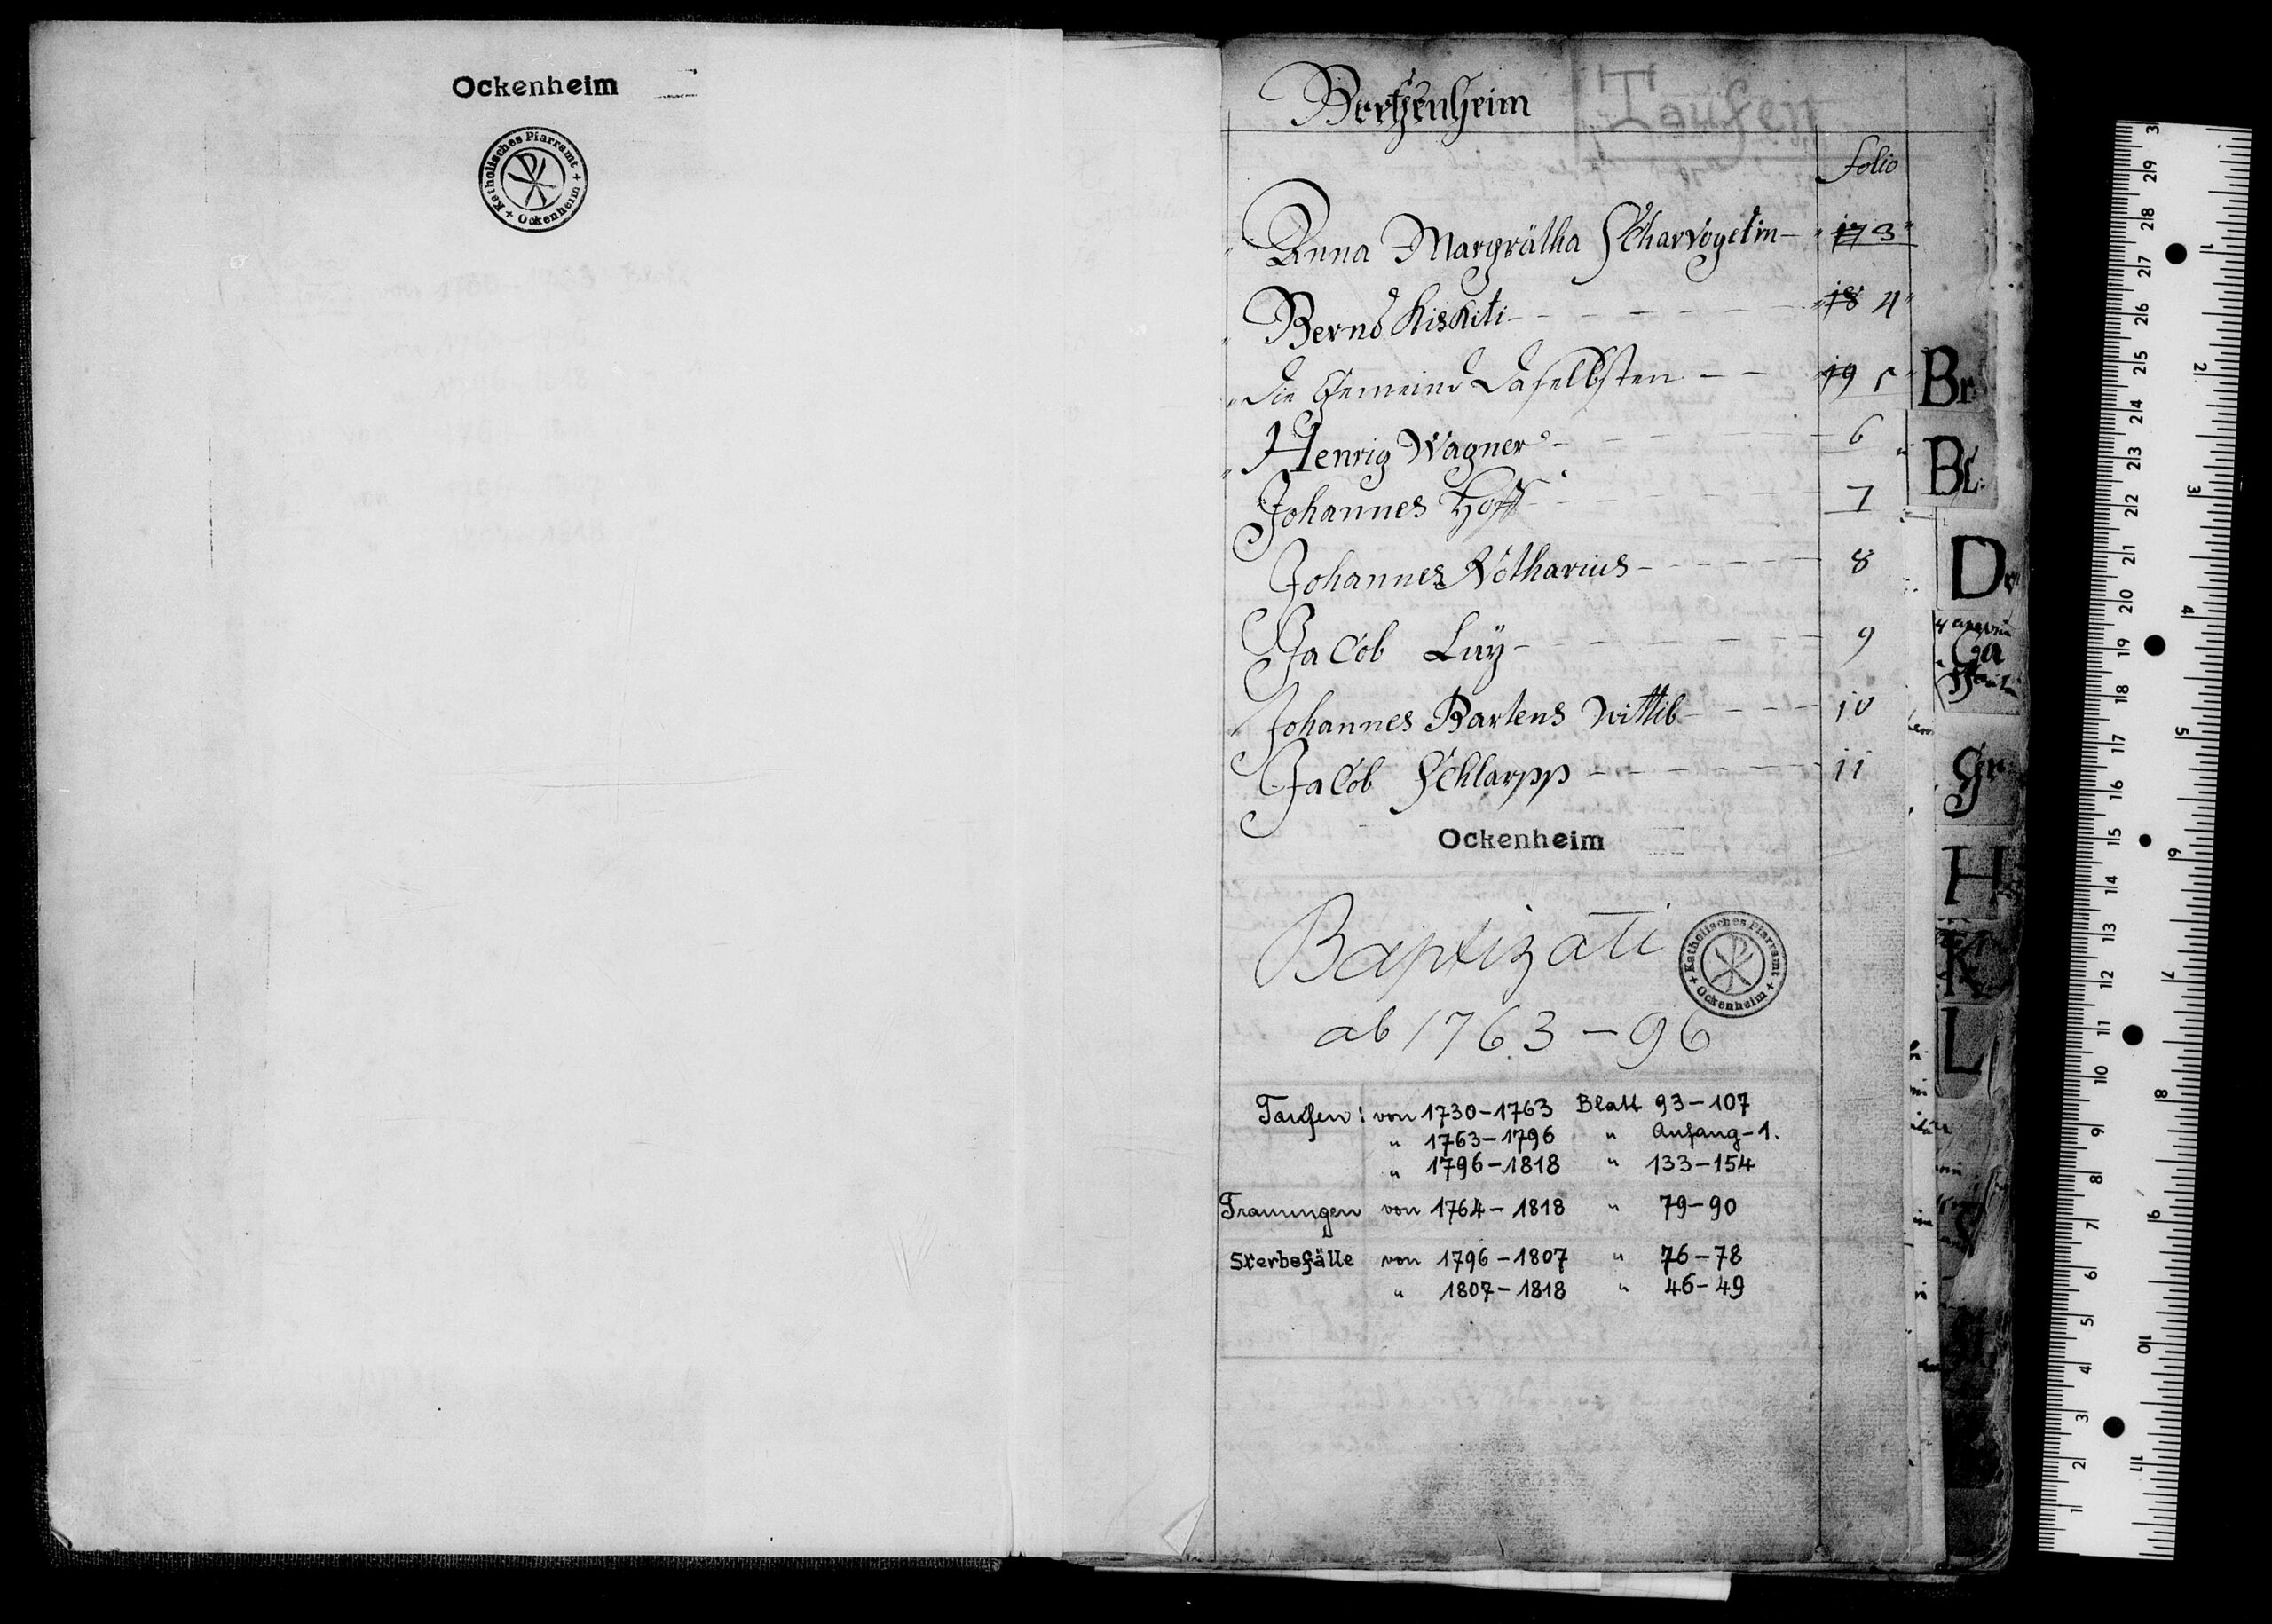 Ockenheim
+ Katholisches Pfarramt + Ockenheim
Bretzenheim
Taufen
folio
Anna Margrätha Scharvogelin — 17 3
Bernd Kiskiti — 18 4
die Gemeind daselbsten — 19 5
Henrig Wagner — 6
Johannes Hoff — 7
Johannes Nötharius — 8
Jacob Luÿ — 9
Johannes Bartens Wittib — 10
Jacob Schlarpp — 11
Ockenheim
Baptizati
+ Katholisches Pfarramt + Ockenheim
ab 1763 – 96
Taufen: von 1730–1763 Blatt 93–107
" 1763–1796 " Anfang–1.
" 1796–1818 " 133–154
Trauungen von 1764–1818 " 79–90
Sterbefälle von 1796–1807 " 76–78
" 1807–1818 " 46–49
Br
Bl
D
Ga
Gr
H
K
L